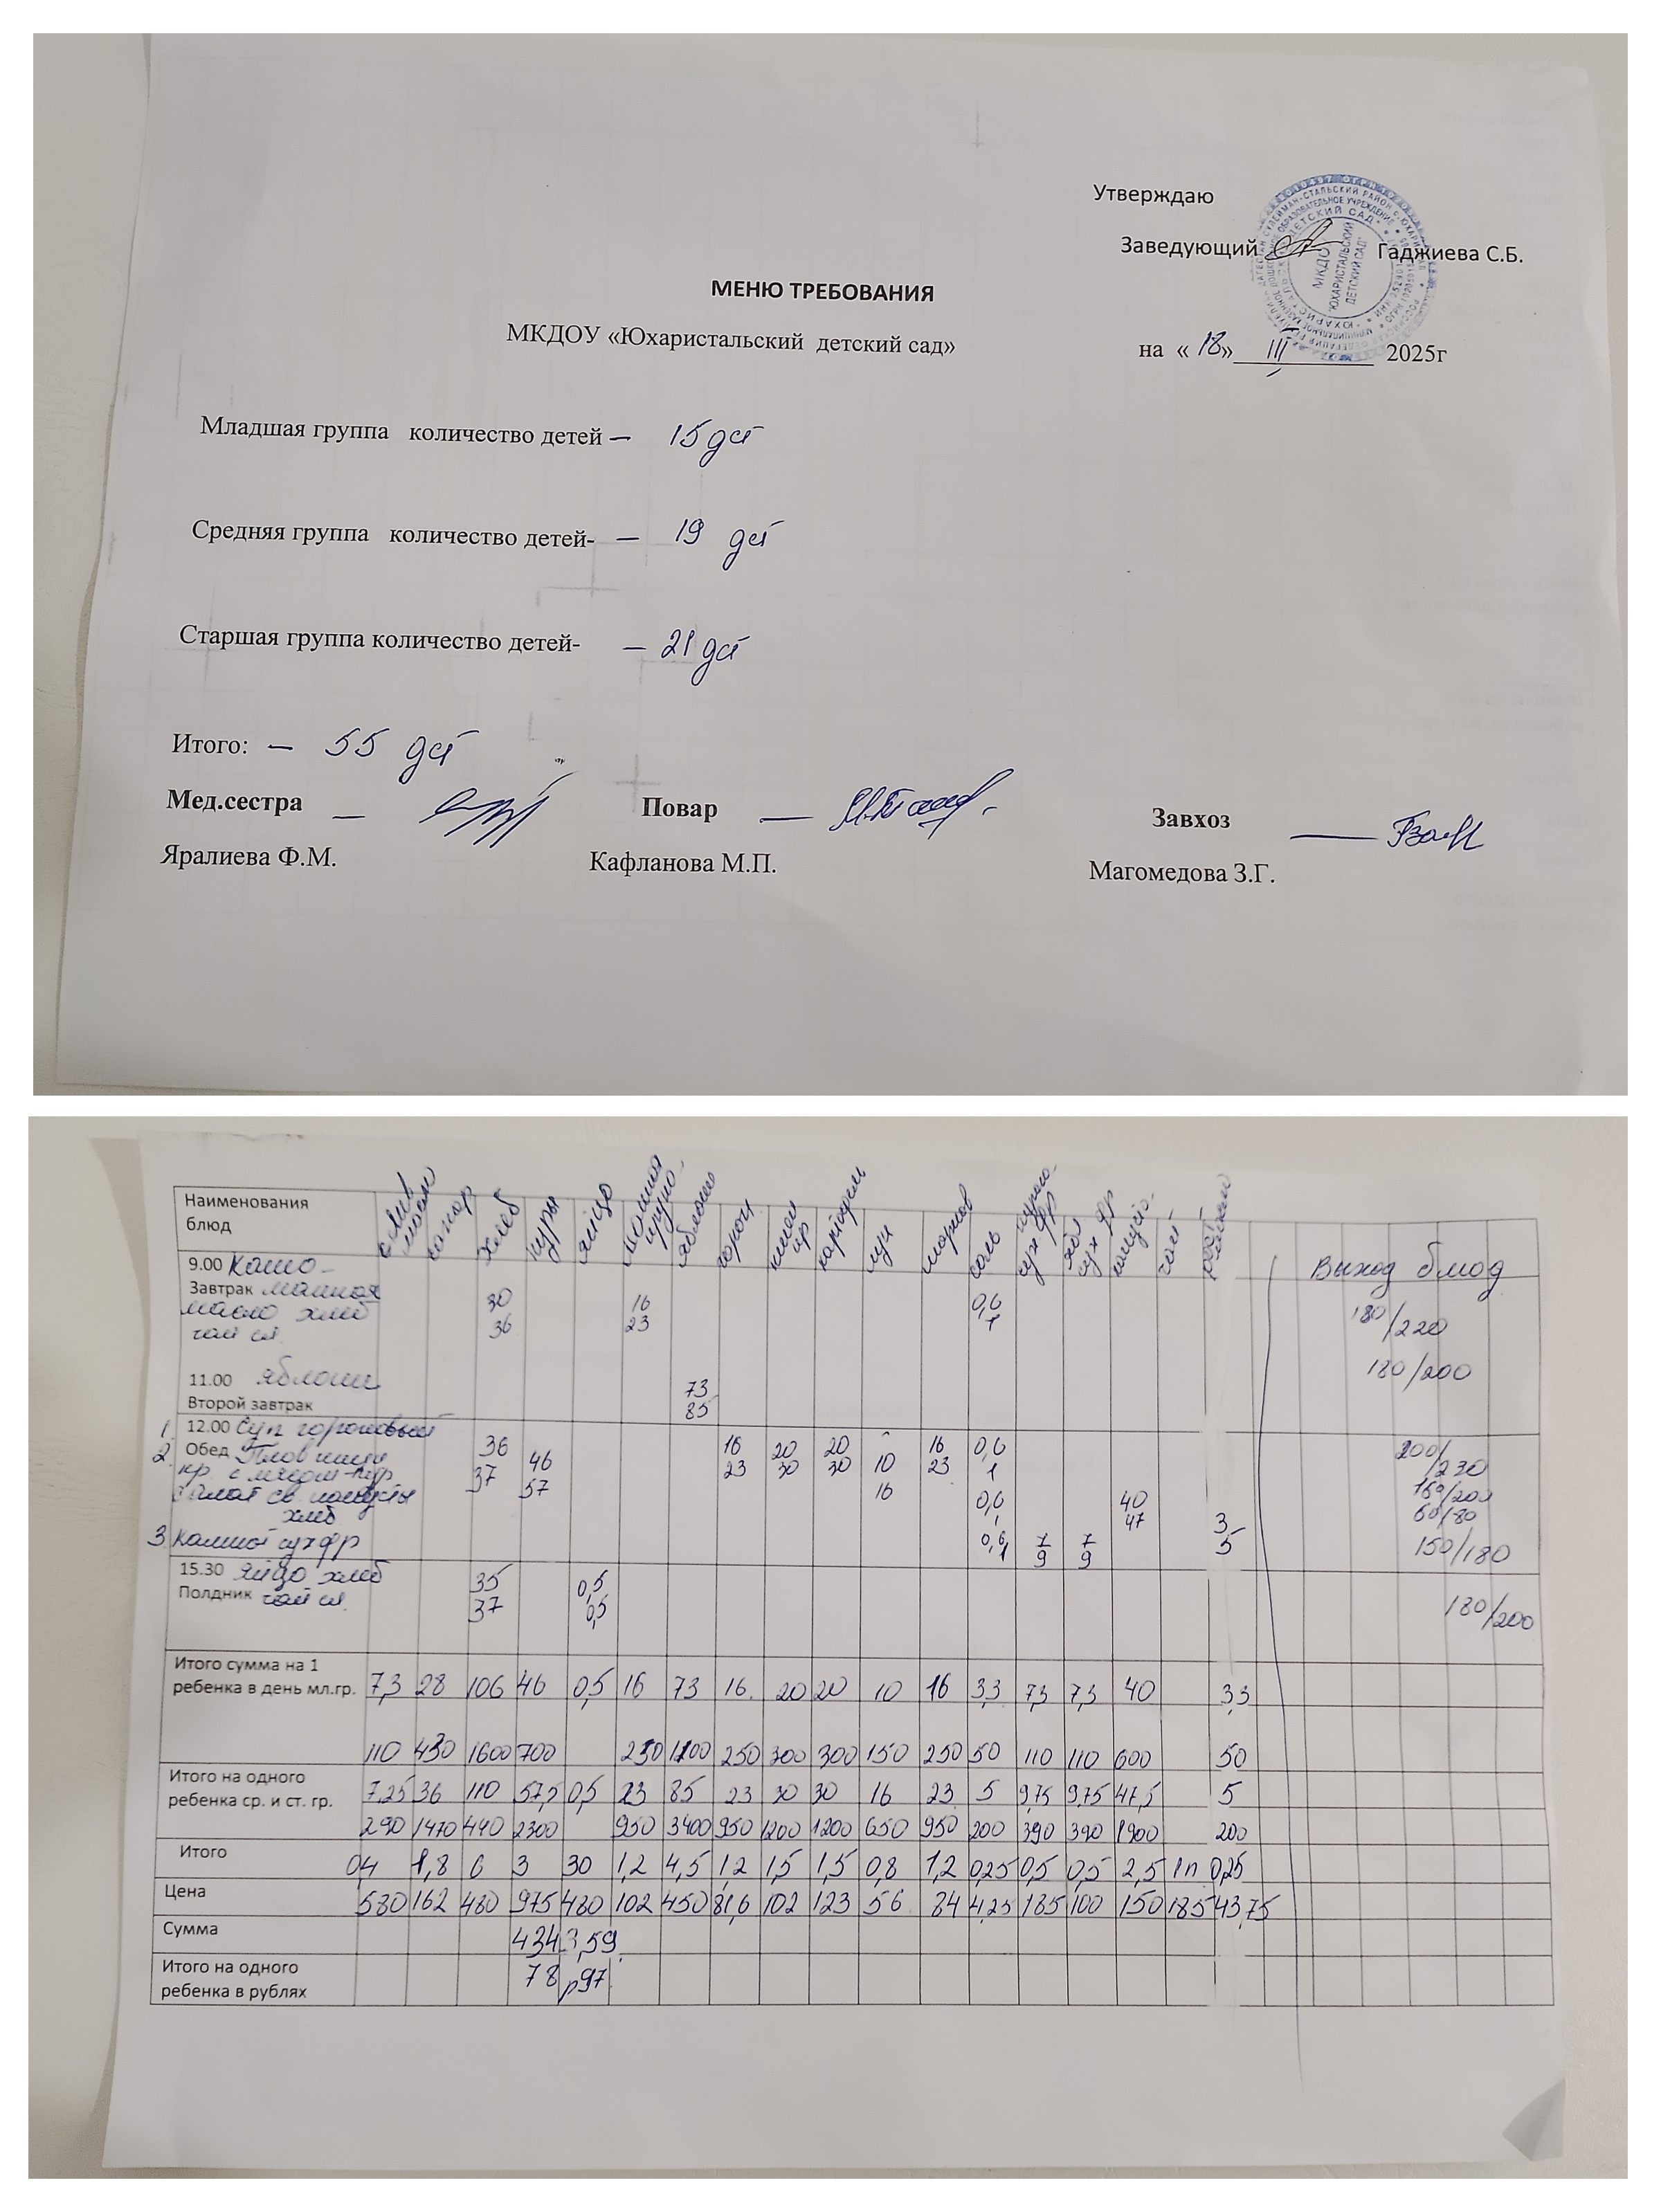 Утверждаю
Заведующий Гаджиева С.Б.
МКДОУ ЮХАРИСТАЛЬСКИЙ ДЕТСКИЙ САД
МЕНЮ ТРЕБОВАНИЯ
МКДОУ «Юхаристальский детский сад»
на «18» III 2025г
Младшая группа количество детей – 15 дет
Средняя группа количество детей- – 19 дет
Старшая группа количество детей- – 21 дет
Итого: – 55 дет
Мед.сестра – Повар — Завхоз —
Яралиева Ф.М. Кафланова М.П. Магомедова З.Г.
Наименования блюд слив масло сахар хлеб куры яйцо манная крупа яблоко горох кр картофель лук морков соль сух фр сух фр капуста чай
9.00 Каша Выход блюд
Завтрак манная 30 16 0,6 180/220
масло хлеб 36 23 1
чай сл.
11.00 яблоки 73 180/200
Второй завтрак 85
1. 12.00 Суп гороховый 36 16 20 20 16 0,6 200/230
2. Обед Плов 46 23 30 30 10 23 1
кр. с мясом кур. 37 57 16
Салат св. капусты 0,6 40 150/200
хлеб 47 3 60/80
3. Компот сухфр 0,6 1 7 9 7 9 5 150/180
15.30 Яйцо хлеб 35 0,5
Полдник чай сл. 37 0,5 180/200
Итого сумма на 1
ребенка в день мл.гр. 7,3 28 106 46 0,5 16 73 16 20 20 10 16 3,3 7,3 7,3 40 3,3
110 430 1600 700 250 1100 250 300 300 150 250 50 110 110 600 50
Итого на одного
ребенка ср. и ст. гр. 7,25 36 110 57,5 0,5 23 85 23 30 30 16 23 5 9,75 9,75 47,5 5
290 1470 440 2300 950 3400 950 1200 1200 650 950 200 390 390 1900 200
Итого 04 1,8 6 3 30 1,2 4,5 1,2 1,5 1,5 0,8 1,2 0,25 0,5 0,5 2,5 1п 0,25
Цена 580 162 480 975 480 102 450 81,6 102 123 56 84 4,25 185 100 150 185 43,75
Сумма 4343,59
Итого на одного
ребенка в рублях 78 р 97